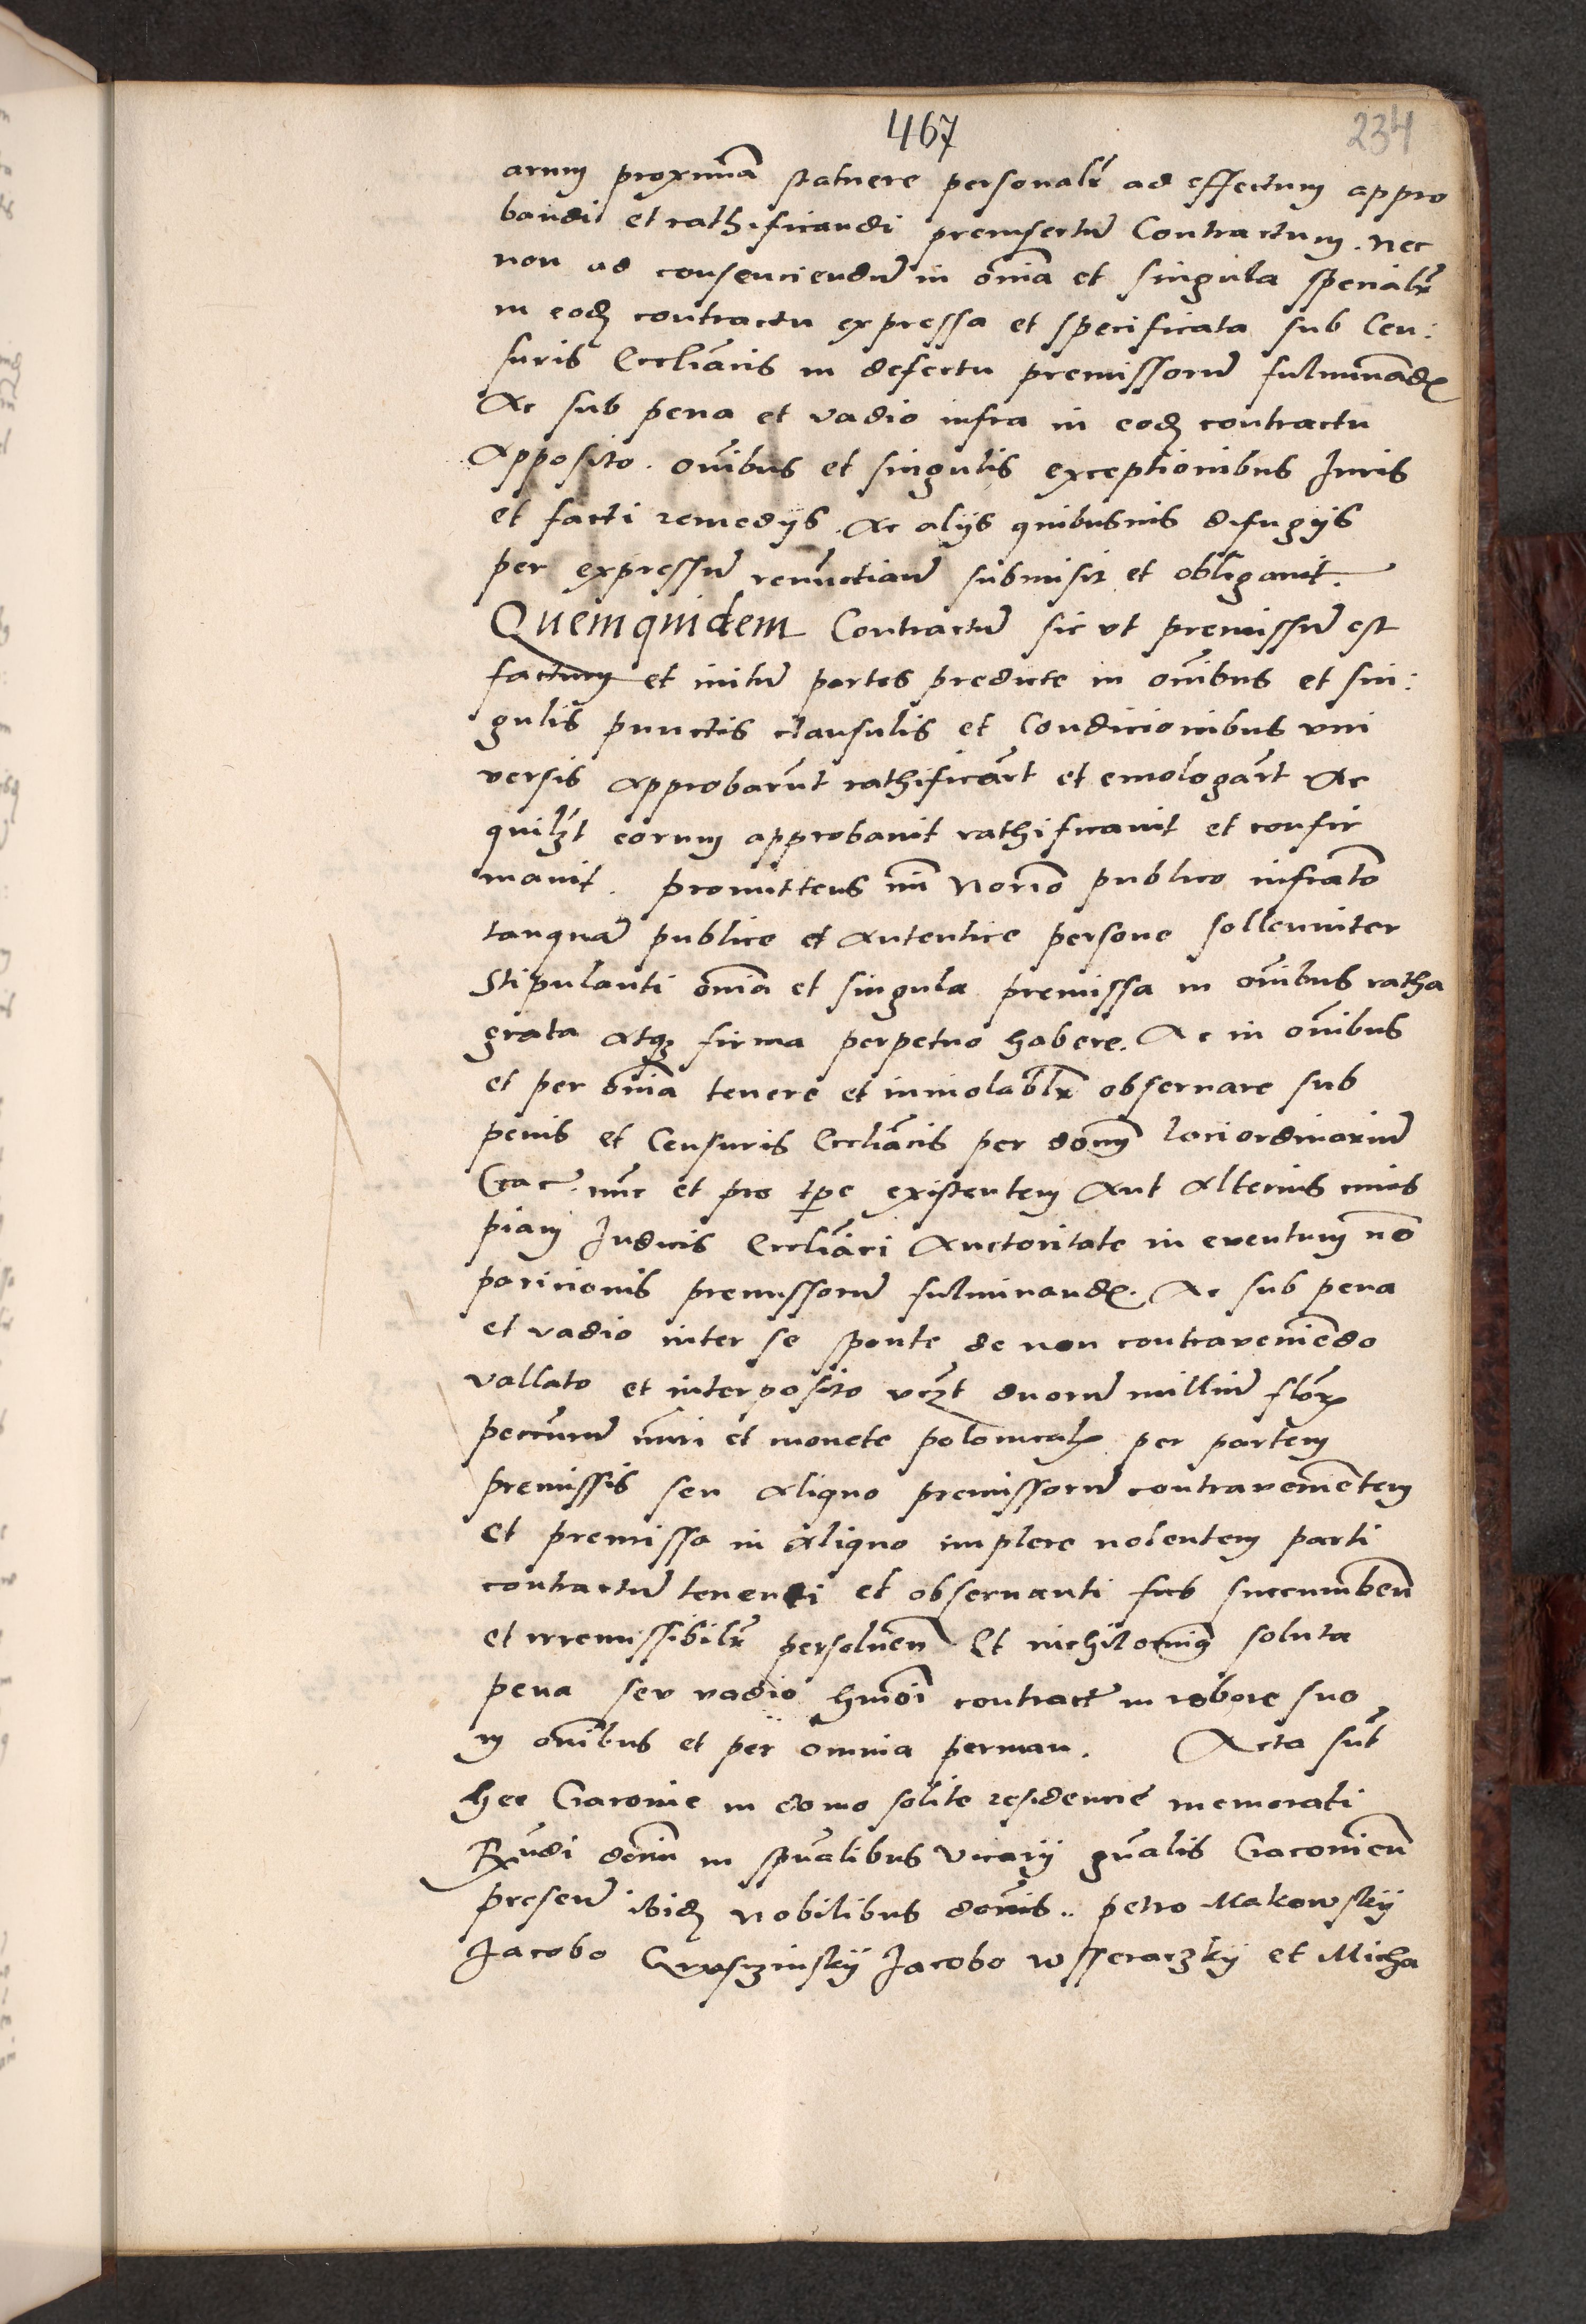 467
234
arum proximā statuere personalr̄ ad effectum appro
bandi et rathificandi preinsertū Contractum. nec
non ad consenciendū in om̄ia et singula specialr̄
in eodꝫ contractu expressa et specificata sub Cen:
suris Eccl̄iacis in defectu premissorū fulminādꝭ
Ac sub pena et vadio infra in eodꝫ contractu
Apposito. om̄ibus et singulis exceptionibus Iuris
et facti remedÿs. Ac alÿs quibusuis difugÿs
per expressū renūctiauit submisit et obligauit.
Quemquidem Contractū sic ut premissū est
factum et initū partes predicte in om̄ibus et sin:
gulis punctis clausulis et Condicionibus uni
versis Approbarūt rathificārt et emologārt Ac
quilꝫt eorum approbauit rathificauit et confir
mauit. promittens m̄i Norīo publico infrāto
tanquā publice et Autentice persone sollenniter
Stipulanti om̄ia et singula premissa in om̄ibus ratha
grata Atqꝫ firma perpetuo habere. Ac in om̄ibus
et per om̄ia tenere et inuiolablr̄ obseruare sub
penis et Censuris Eccl̄iacis per dom̄ loci ordinariū
Crac̄. nūc et pro tp̄e existentem Aut Alterius cuius
piam Iudicis Eccl̄iaci Auctoritate in eventum nō
paricionis premissorū fulminandꝭ. Ac sub pena
et vadio inter se sponte de non contraveniēdo
vallato et interposito vcꝫt duorū milliū flōrꝭ
peccūiarū nūri et monete polonicalꝭ per partem
premissis seu Aliquo premissorū contravenientem
et premissa in Aliquo implere nolentem parti
contractū tenenti et obseruanti sub succumben̄
et irremissibilr̄ persoluen̄. Et nichilominꝰ soluta
pena seu vadio hmōi contractꝰ in robore suo
in om̄ibus et per omnia perman. Acta sūt
hec Cracouie in domo solite residencie memorati
Rn̄di dom̄i in spūalibus Vicarÿ gn̄alis Cracouien̄
presen̄ ibidꝫ Nobilibus dom̄is.. petro Makowskÿ
Jacobo Grusczinskÿ Jacobo wsseraczkÿ et Micha